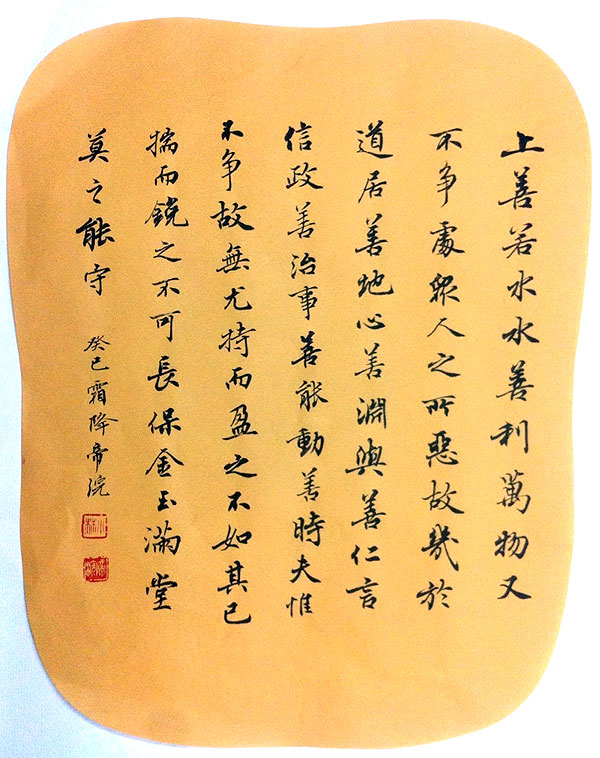 上善若水水善利萬物又
不争處眾人之所惡故幾於
道居善地心善淵與善仁言
信政善治事善能動善時夫惟
不争故無尤持而盈之不如其已
揣而鋭之不可長保金玉滿堂
莫之能守
癸巳霜降帝浣